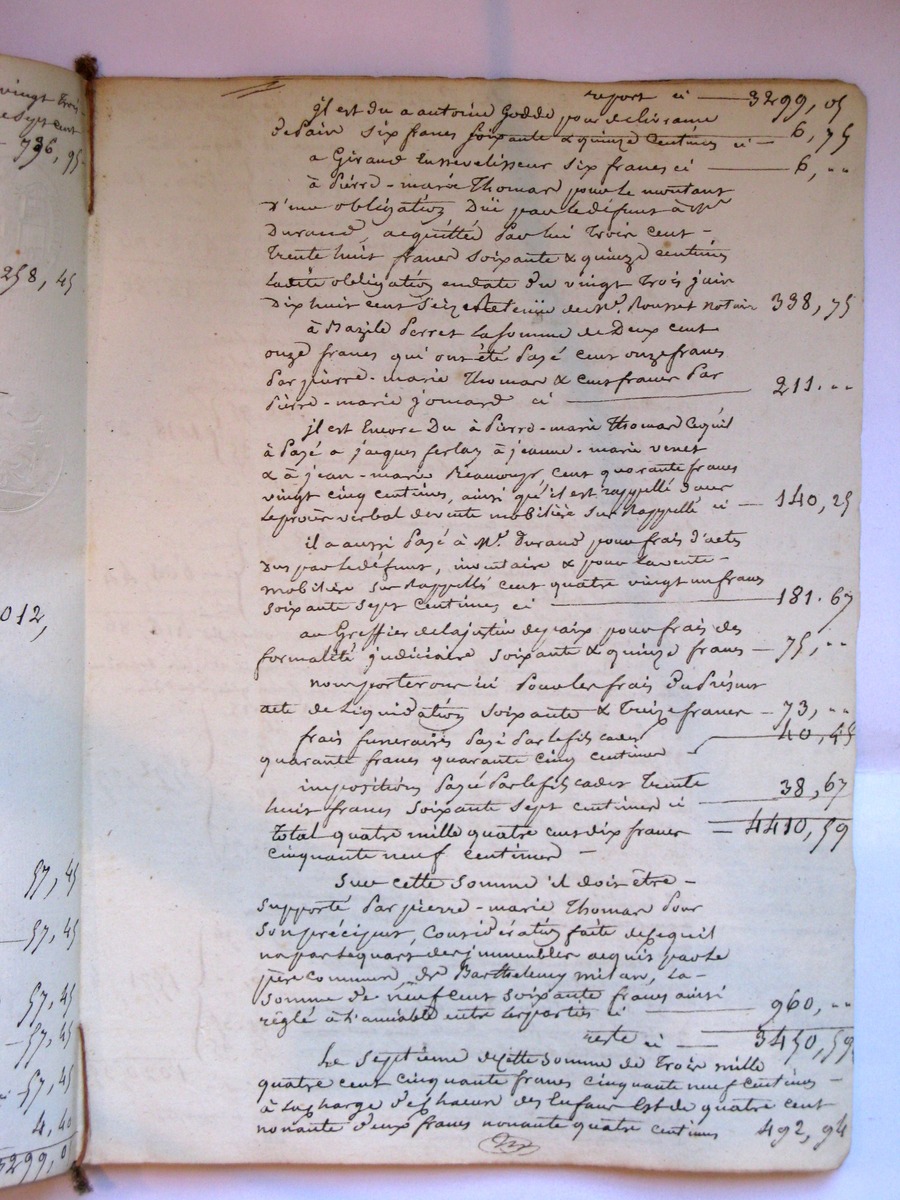 vingt trois
sept cent
736, 95
258, 45
012,
57, 45
57, 45
57, 45
57, 45
57, 45
4, 40
3299, 05
report ci 3299, 05
il est du a antoine Godde pour delivrance
de pain six francs soixante & quinze centimes ci 6, 75
a Giraud ensevelisseur six francs ci 6, ..
à pierre-marie Thomas pour le montant
d'une obligation düe par le défunt à Mr
Durand, acquittée par lui trois cent
trente huit francs soixante & quinze centimes
ladite obligation en date du vingt trois juin
dix huit cent seize de Mr. Rousset notaire 338, 75
à Bazile Perret la somme de deux cent
onze francs qui ont été payé cent onze francs
par pierre-marie Thomas & cent francs par
pierre-marie jomard ci 211. ..
il est encore du à pierre-marie Thomas ce qu'il
à payé a jacques ferlay à jeanne-marie venet
& à jean-marie cent quarante francs
vingt cinq centimes, ainsi qu'il est rappellé dans
le procès verbal de vente mobilière sus rappellé ci 140, 25
il a aussi payé à Mr. Durand pour frais d'acts
dus par le défunt, inventaire & pour la vente
mobilière sus rappellé cent quatre vingt un francs
soixante sept centimes ci 181. 67
au Greffier de la justice de paix pour frais des
formalité judiciaire soixante & quinze francs 75, ..
nous porterons ici pour les frais du présent
acte de liquidation soixante & treize francs 73, ..
frais funeraires payé par le fils cadet 40, 45
quarante francs quarante cinq centimes
impositions payé par le fils cadet trente
huit francs soixante sept centimes ci 38, 67
total quatre mille quatre cent dix francs 4410, 59
cinquante neuf centimes
sur cette somme il doit être
supporté par pierre-marie Thomas pour
son préciput, considération faite de ce qu'il
n'a pas le quart des immeubles acquis par le
père commun, de Barthelemy milan, la
somme de neuf cent soixante francs ainsi
réglé à l'amiable entre les parties ci 960, ..
reste ci 3450, 59
Le septième de cette somme de trois mille
quatre cent cinquante francs cinquante neuf centimes
à la charge de chacun des enfans est de quatre cent
nonante deux francs nonante quatre centimes 492, 94